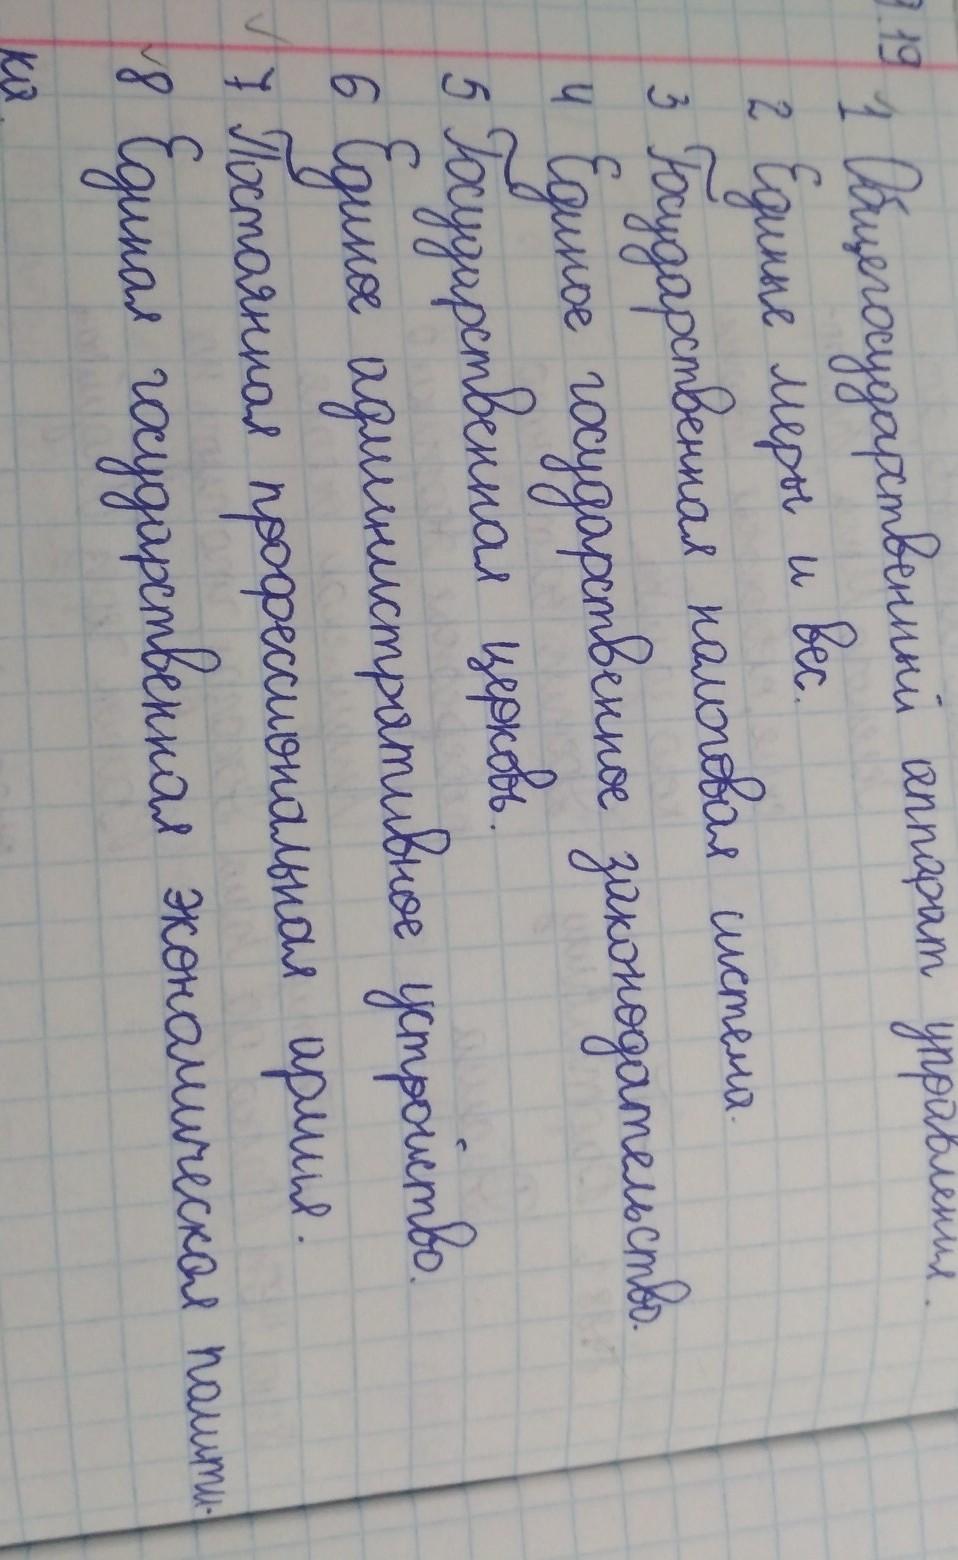 .19
1 Общегосударственный аппарат управления.
2 Единые меры и вес.
3 Государственная налоговая система.
4 Единое государственное законодательство.
5 Государственная церковь.
6 Единое административное устройство.
7 Постоянная профессиональная армия.
8 Единая государственная экономическая полити-
ка.